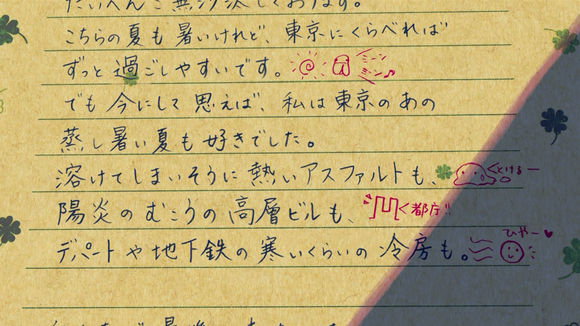 たいへんご無沙汰しております。
こちらの夏も暑いけれど、東京にくらべれば
ずっと過ごしやすいです。 ミーン ミーン♪
でも今にして思えば、私は東京のあの
蒸し暑い夏も好きでした。
溶けてしまいそうに熱いアスファルトも、 とけるー
陽炎のむこうの高層ビルも、 都庁!!
デパートや地下鉄の寒いくらいの冷房も。 ひやー♥